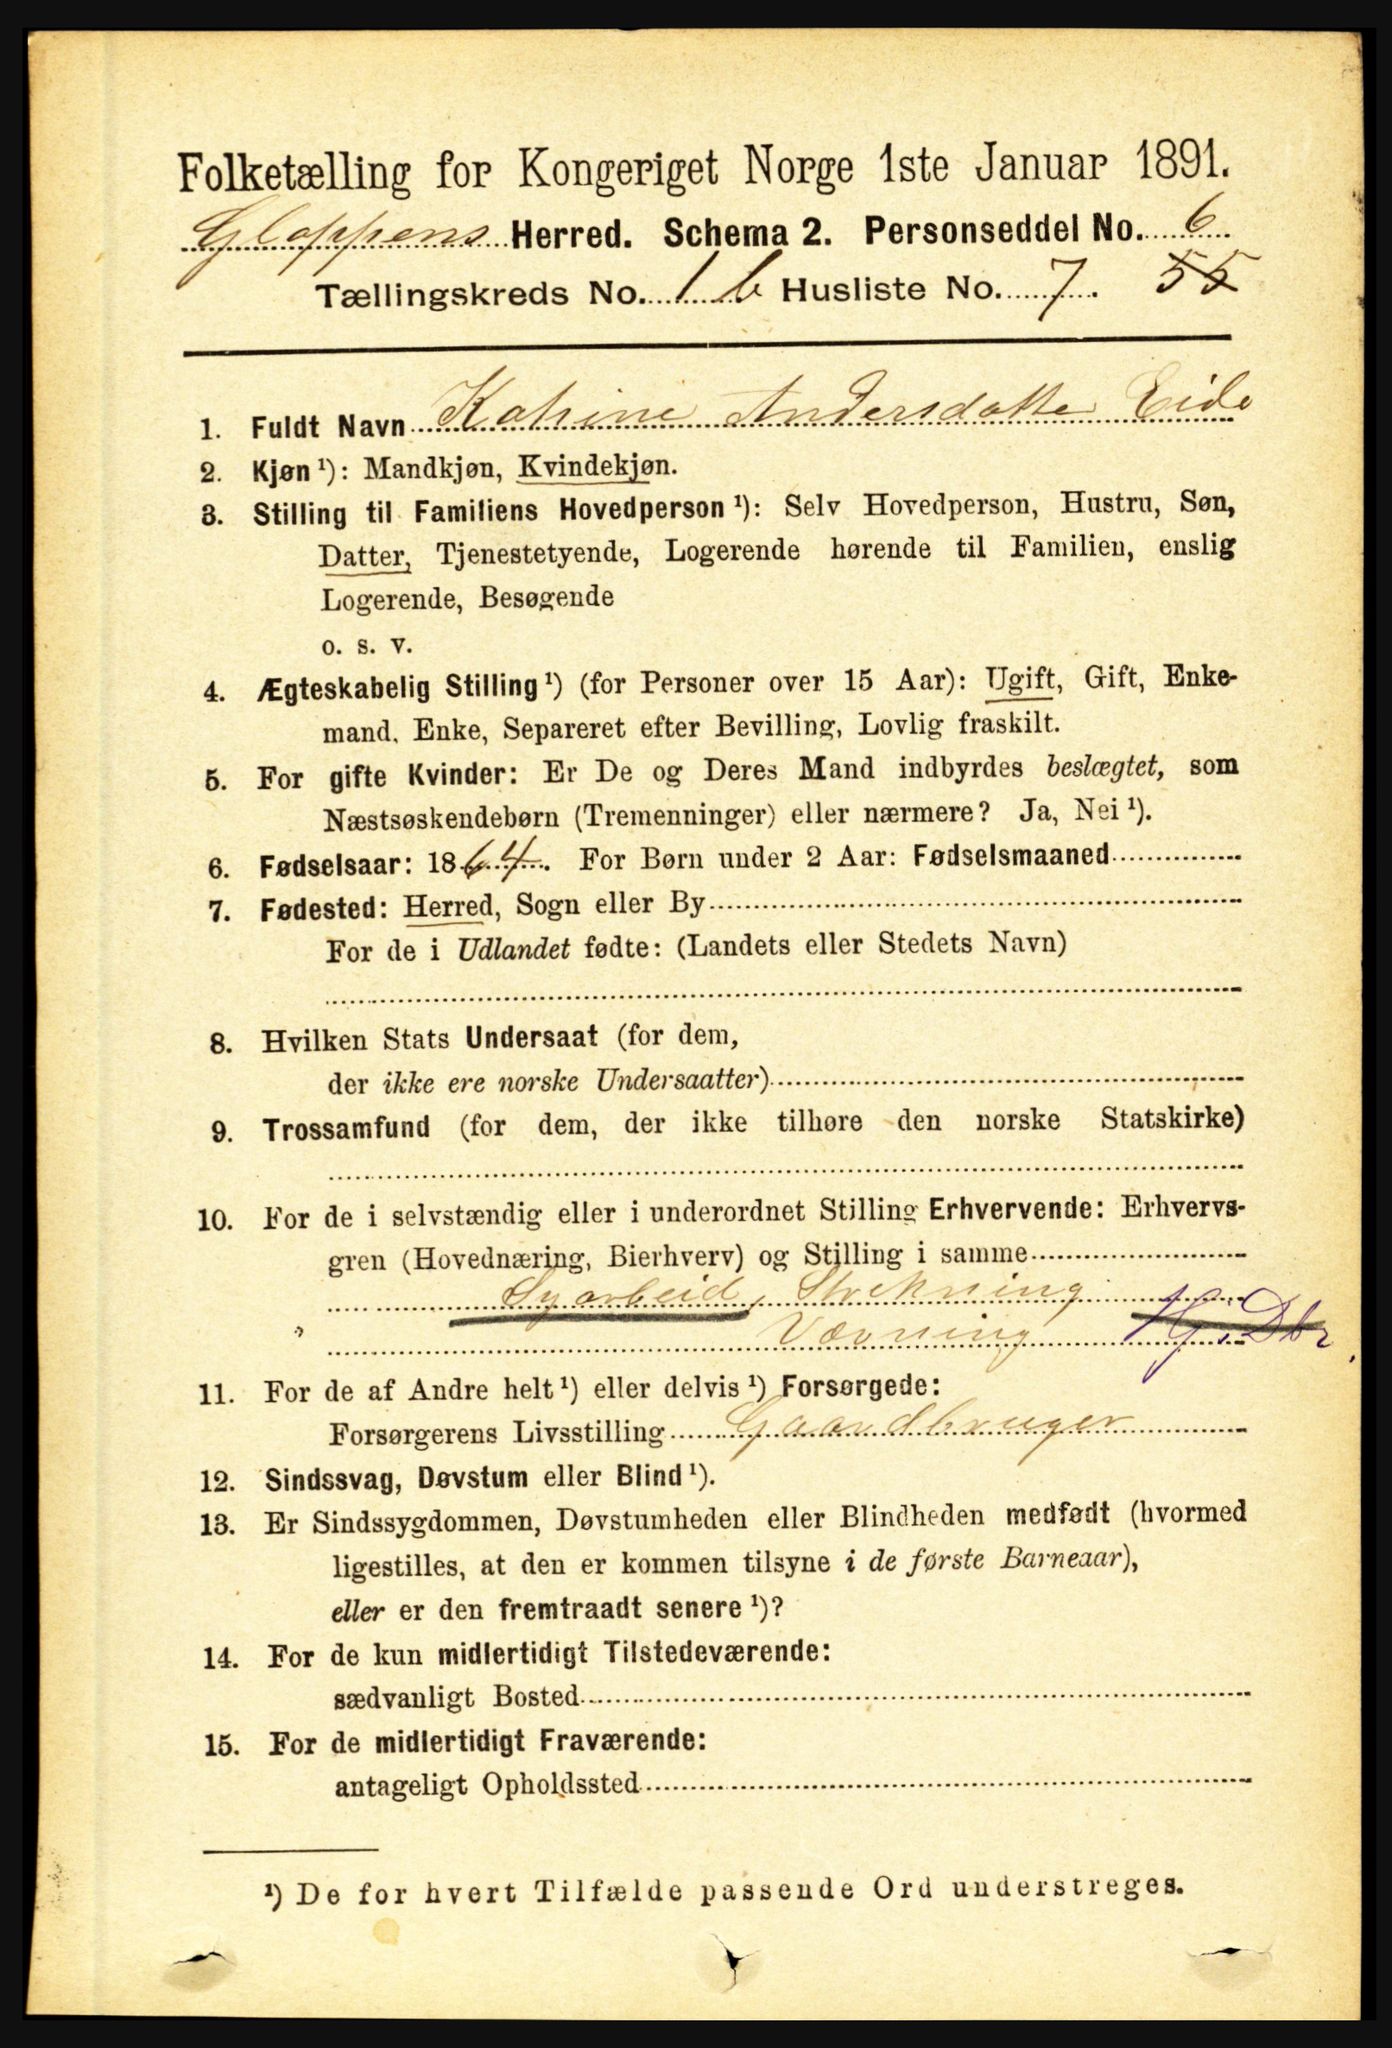 Folketælling for Kongeriget Norge 1ste Januar 1891.
Gloppens Herred. Schema 2. Personseddel No. 6
Tællingskreds No. 1 b Husliste No. 7. 55
1. Fuldt Navn Katrine Andersdatte Eide
2. Kjøn ¹): Mandkjøn, Kvindekjøn.
3. Stilling til Familiens Hovedperson ¹): Selv Hovedperson, Hustru, Søn,
Datter, Tjenestetyende, Logerende hørende til Familien, enslig
Logerende, Besøgende
o. s. v.
4. Ægteskabelig Stilling ¹) (for Personer over 15 Aar): Ugift, Gift, Enke-
mand, Enke, Separeret efter Bevilling, Lovlig fraskilt.
5. For gifte Kvinder: Er De og Deres Mand indbyrdes beslægtet, som
Næstsøskendebørn (Tremenninger) eller nærmere? Ja, Nei ¹).
6. Fødselsaar: 1864. For Børn under 2 Aar: Fødselsmaaned
7. Fødested: Herred, Sogn eller By
For de i Udlandet fødte: (Landets eller Stedets Navn)
8. Hvilken Stats Undersaat (for dem,
der ikke ere norske Undersaatter)
9. Trossamfund (for dem, der ikke tilhøre den norske Statskirke)
10. For de i selvstændig eller i underordnet Stilling Erhvervende: Erhvervs-
gren (Hovednæring, Bierhverv) og Stilling i samme
Syarbeid, Strekning
" Vævning Hj. Dtr.
11. For de af Andre helt ¹) eller delvis ¹) Forsørgede:
Forsørgerens Livsstilling Gaardbruger
12. Sindssvag, Døvstum eller Blind ¹).
13. Er Sindssygdommen, Døvstumheden eller Blindheden medfødt (hvormed
ligestilles, at den er kommen tilsyne i de første Barneaar),
eller er den fremtraadt senere ¹)?
14. For de kun midlertidigt Tilstedeværende:
sædvanligt Bosted
15. For de midlertidigt Fraværende:
antageligt Opholdssted
¹) De for hvert Tilfælde passende Ord understreges.